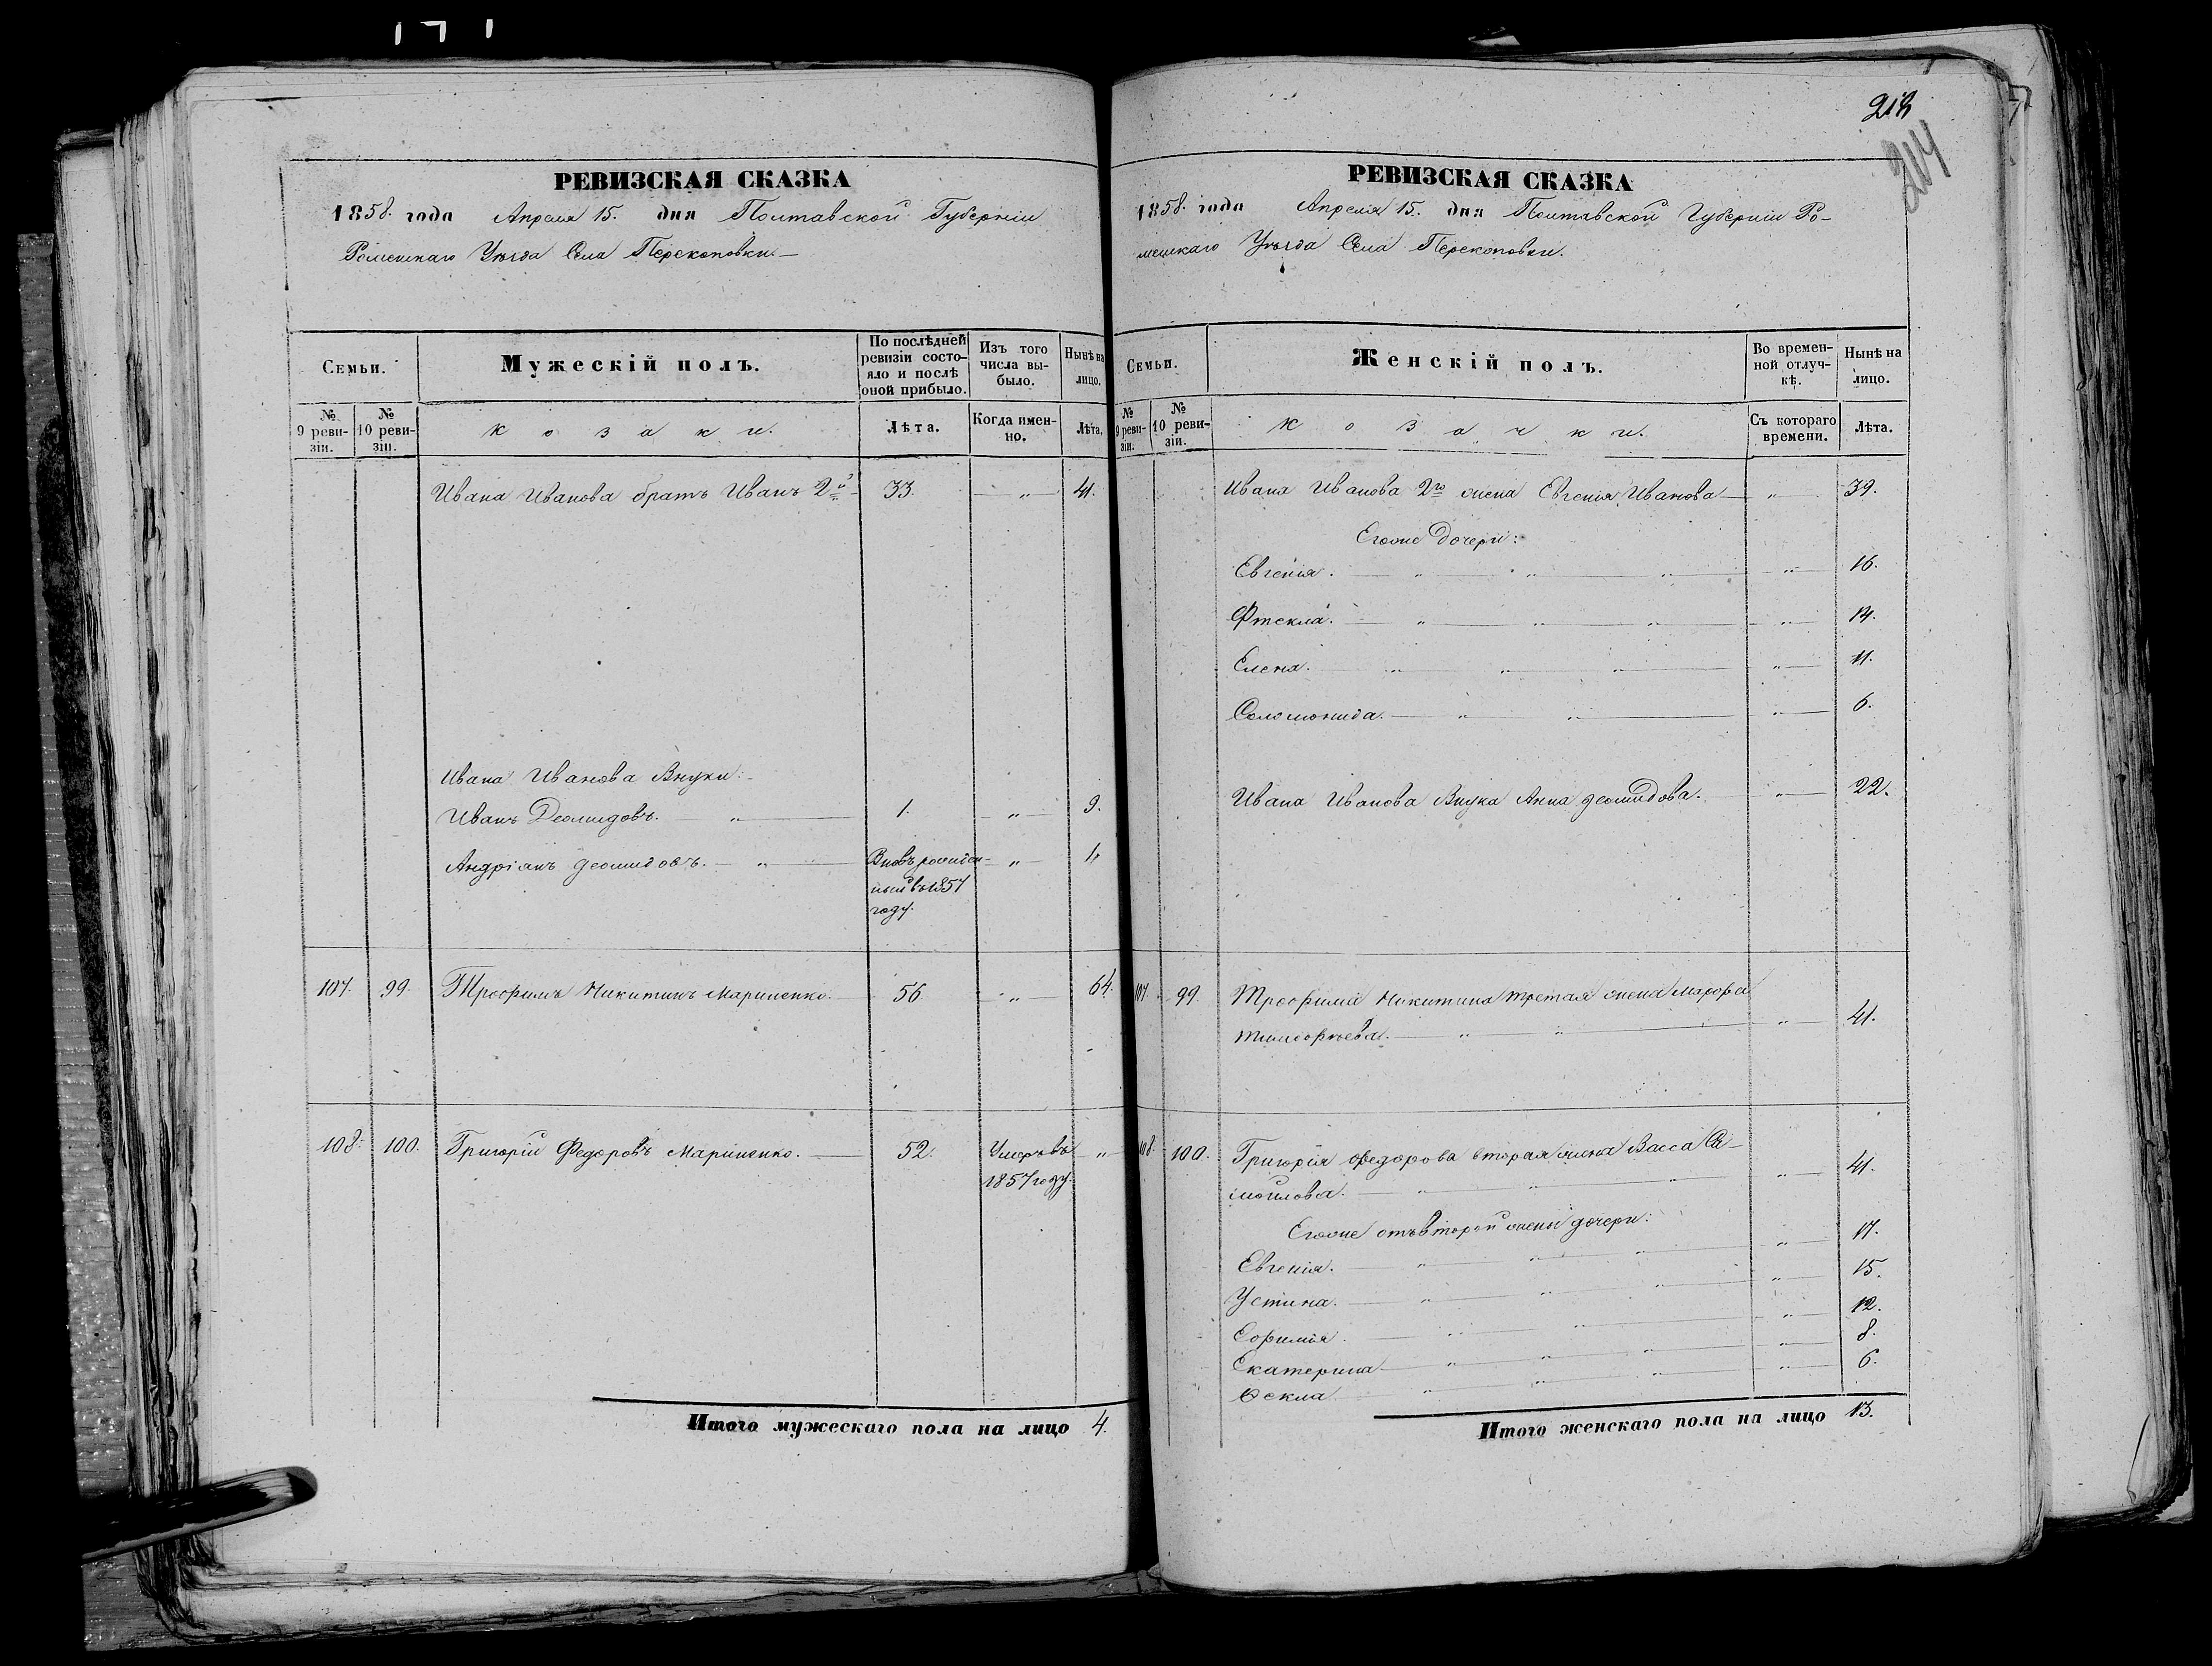 213
214
РЕВИЗСКАЯ СКАЗКА
1858. года Апреля 15. дня Полтавской Губерніи
Роменскаго Уѣзда Села Перекоповки.
Семьи.
Мужескій полъ.
По послѣдней ревизіи состояло и послѣ оной прибыло.
Изъ того числа выбыло.
Нынѣ на лицо.
№ 9 ревизіи.
№ 10 ревизіи.
Козаки.
Лѣта.
Когда именно.
Лѣта.
Ивана Иванова братъ Иванъ 2й 33. " 41.
Ивана Иванова Внуки:
Иванъ Деомидовъ. " 1. " 9.
Андріанъ Деомидовъ. " Вновьрожден- " 1.
ныйвъ1857
году.
107. 99. Трофимъ Никитинъ Мариненко. 56. " 64.
108. 100. Григорій Федоровъ Мариненко. 52. Умеръвъ "
1857году.
Итого мужескаго пола на лицо 4.
РЕВИЗСКАЯ СКАЗКА
1858. года Апреля 15. дня Полтавской Губерніи Ро-
менскаго Уѣзда Села Перекоповки.
Семьи.
Женскій полъ.
Во временной отлучкѣ.
Нынѣ на лицо.
№ 9 ревизіи.
№ 10 ревизіи.
Козачки.
Съ котораго времени.
Лѣта.
Ивана Иванова 2го жена Евгенія Иванова " 39.
Егоже Дочери:
Евгенія. " " " " 16.
Фтекла. " " " " 14.
Елена. " " " " 11.
Соломонида. " " " 6.
Ивана Иванова Внука Анна Деомидова. " 22.
107. 99. Трофима Никитина третая жена Марфа
Тимофѣева. " " " 41.
108. 100. Григорія Федорова вторая жена Васса Са-
мойлова. " " " " 41.
Егоже отъвторой жены дочери:
Евгенія. " " " " 17.
Устина. " " " " 15.
Ефимія. " " " " 12.
Екатерина " " " " 8.
Фекла " " " " 6.
Итого женскаго пола на лицо 13.